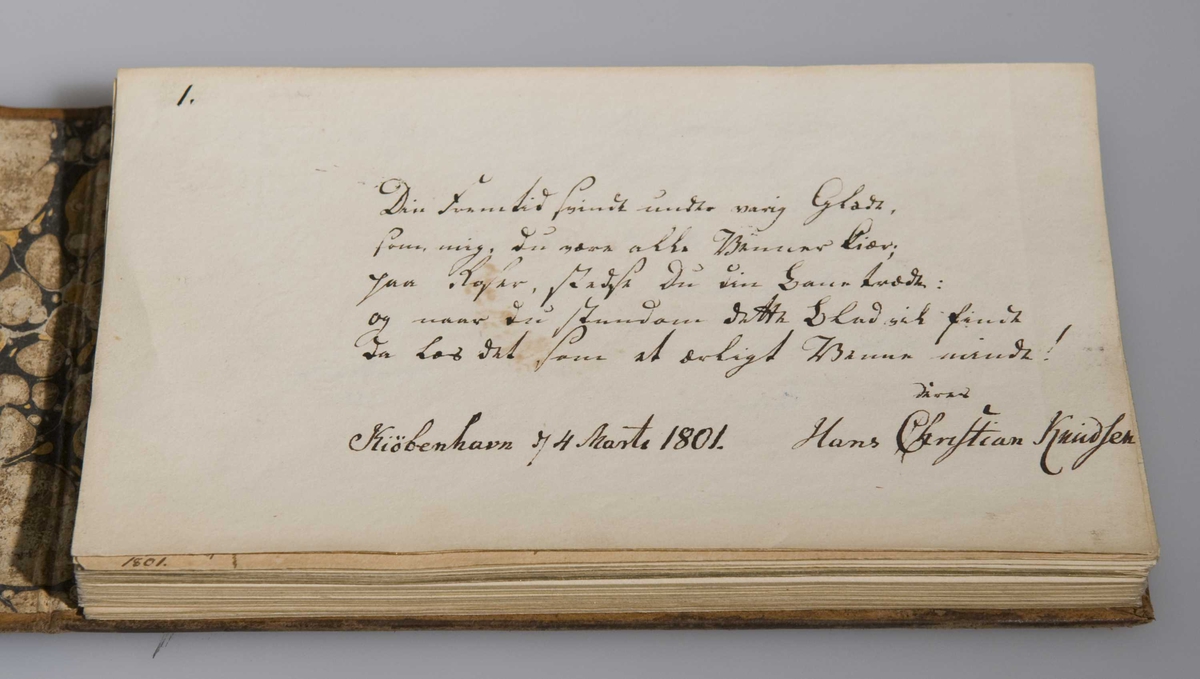 1.
Din Fremtid svinde under varig Glæde,
som mig, du være alle Venner kiær,
paa Roser, stedse Du din Bane træde:
og naar du stundom dette Blad vil finde
Da læs det som et ærligt Venne minde!
deres
Kiöbenhavn d 4 Marts 1801. Hans Christian Knudsen
1801.